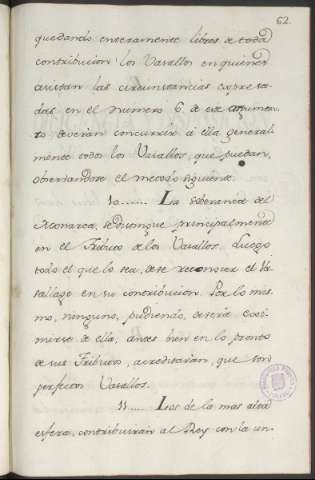 62.
quedando enteramente libres de toda
contribucion los Vasallos en quienes
existan las circunstancias expresa-
das en el numero 6. de este argumen-
to deverian concurrir á ella general-
mente todos los Vasallos, que puedan,
observandose el metodo siguiente.
10...... La soberania del
Monarca, se distingue principalmente
en el Tributo de los Vasallos. Luego
todo el que lo sea, deve reconocer el Va-
sallage en su contribucion. Por lo mis-
mo, ninguno, pudiendo, deverá exi-
mirse de ella, antes bien en lo pronto
de sus Tributos, acreditarán, que son
perfectos Vasallos.
11...... Los de la mas alta
esfera, contribuirán al Rey con la un-